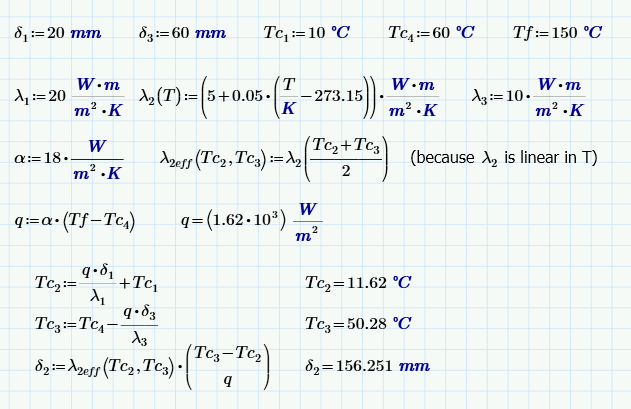 δ₁:=20 mm δ₃:=60 mm Tc₁:=10 °C Tc₄:=60 °C Tf:=150 °C
λ₁:=20 W·m/(m²·K) λ₂(T):=(5+0.05·(T/K−273.15))·W·m/(m²·K) λ₃:=10·W·m/(m²·K)
α:=18·W/(m²·K) λ₂eff(Tc₂,Tc₃):=λ₂((Tc₂+Tc₃)/2) (because λ₂ is linear in T)
q:=α·(Tf−Tc₄) q=(1.62·10³) W/m²
Tc₂:=q·δ₁/λ₁+Tc₁ Tc₂=11.62 °C
Tc₃:=Tc₄−q·δ₃/λ₃ Tc₃=50.28 °C
δ₂:=λ₂eff(Tc₂,Tc₃)·((Tc₃−Tc₂)/q) δ₂=156.251 mm